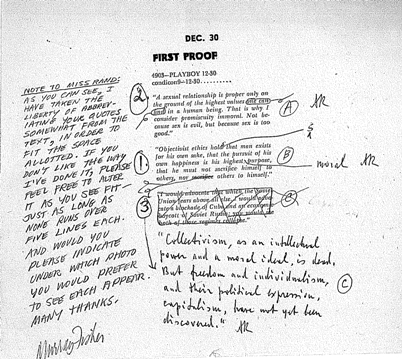 DEC. 30
FIRST PROOF
4903—PLAYBOY 12-30
NOTE TO MISS RAND:
AS YOU CAN SEE, I
HAVE TAKEN THE
LIBERTY OF ABBREV-
IATING YOUR QUOTES
SOMEWHAT FROM THE
TEXT, IN ORDER TO
FIT THE SPACE
ALLOTTED. IF YOU
DON'T LIKE THE WAY
I'VE DONE IT, PLEASE
FEEL FREE TO ALTER
IT AS YOU SEE FIT—
JUST AS LONG AS
NONE RUNS OVER
FIVE LINES EACH.
AND WOULD YOU
PLEASE INDICATE
UNDER WHICH PHOTO
YOU WOULD PREFER
TO SEE EACH APPEAR.
MANY THANKS.
Murray Fisher
2
"A sexual relationship is proper only on
the ground of the highest values one can
find in a human being. That is why I
consider promiscuity immoral. Not be-
cause sex is evil, but because sex is too
good."
A
AR
1
"Objectivist ethics hold that man exists
for his own sake, that the pursuit of his
own happiness is his highest purpose,
that he must not sacrifice himself to
others, nor sacrifice others to himself."
B
moral AR
3
"I would advocate that which the Soviet
Union fears above all else,
blockade of Cuba and an
boycott of Soviet Russia;
both of those regimes collapse."
C
"Collectivism, as an intellectual
power and a moral ideal, is dead.
But freedom and individualism,
and their political expression,
capitalism, have not yet been
discovered." AR
C